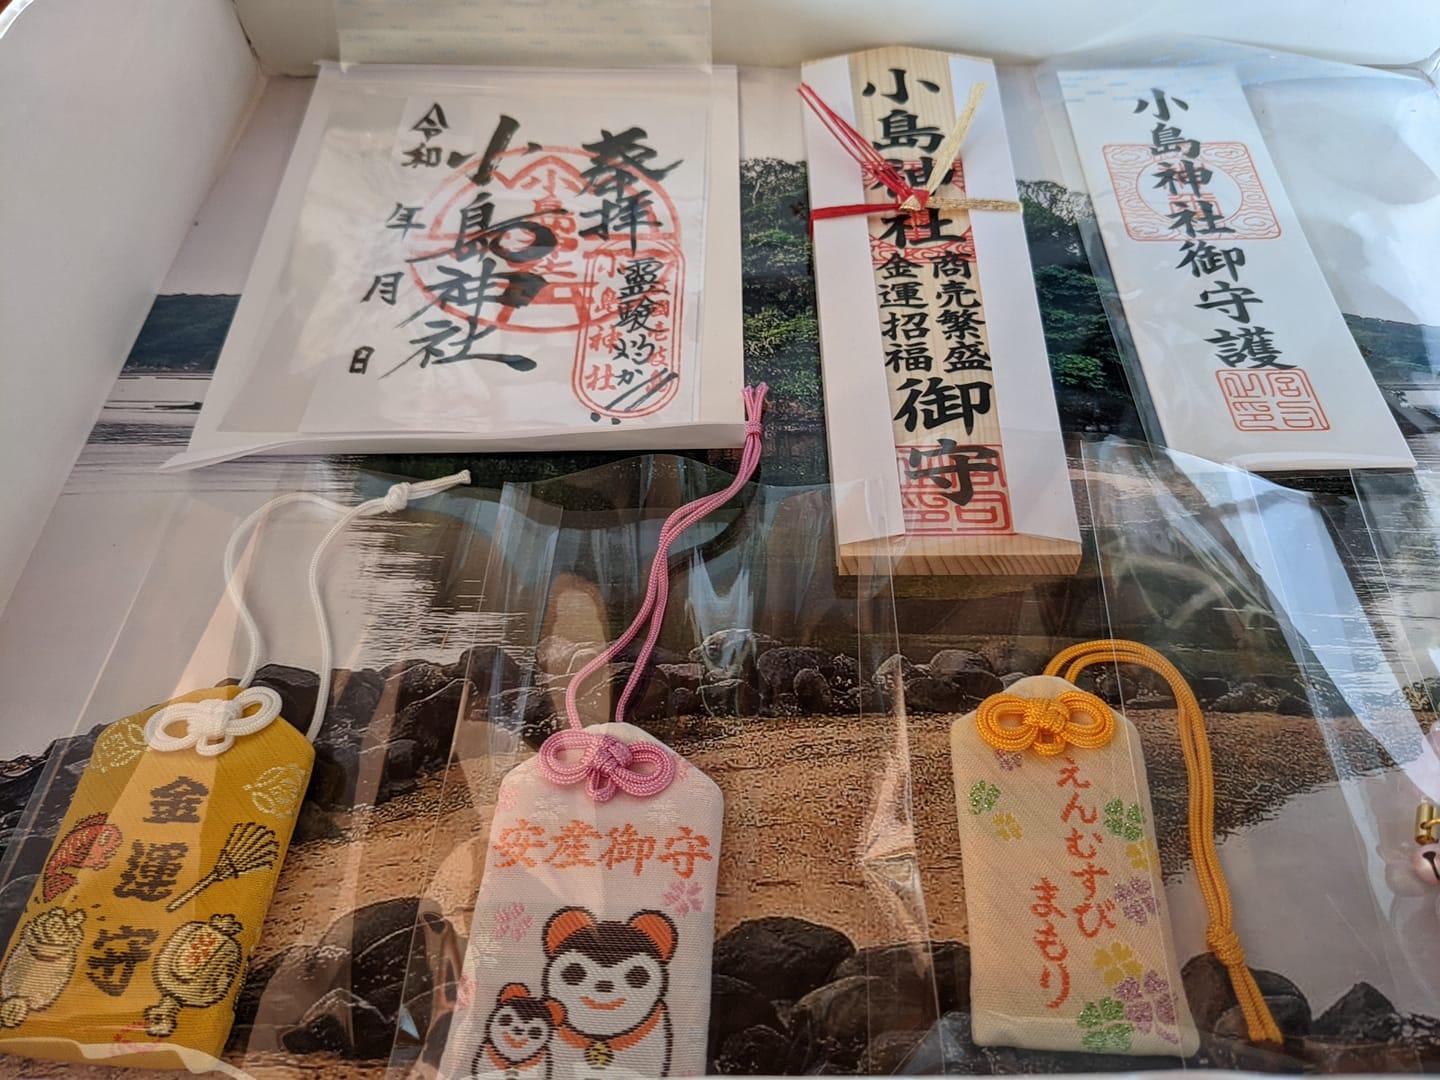 奉拝
小島神社
令和
年
月
日
靈験
小島神社
小島神社
商売繁盛
金運招福
御守
小島神社御守護
金運守
安産御守
えんむすび
まもり